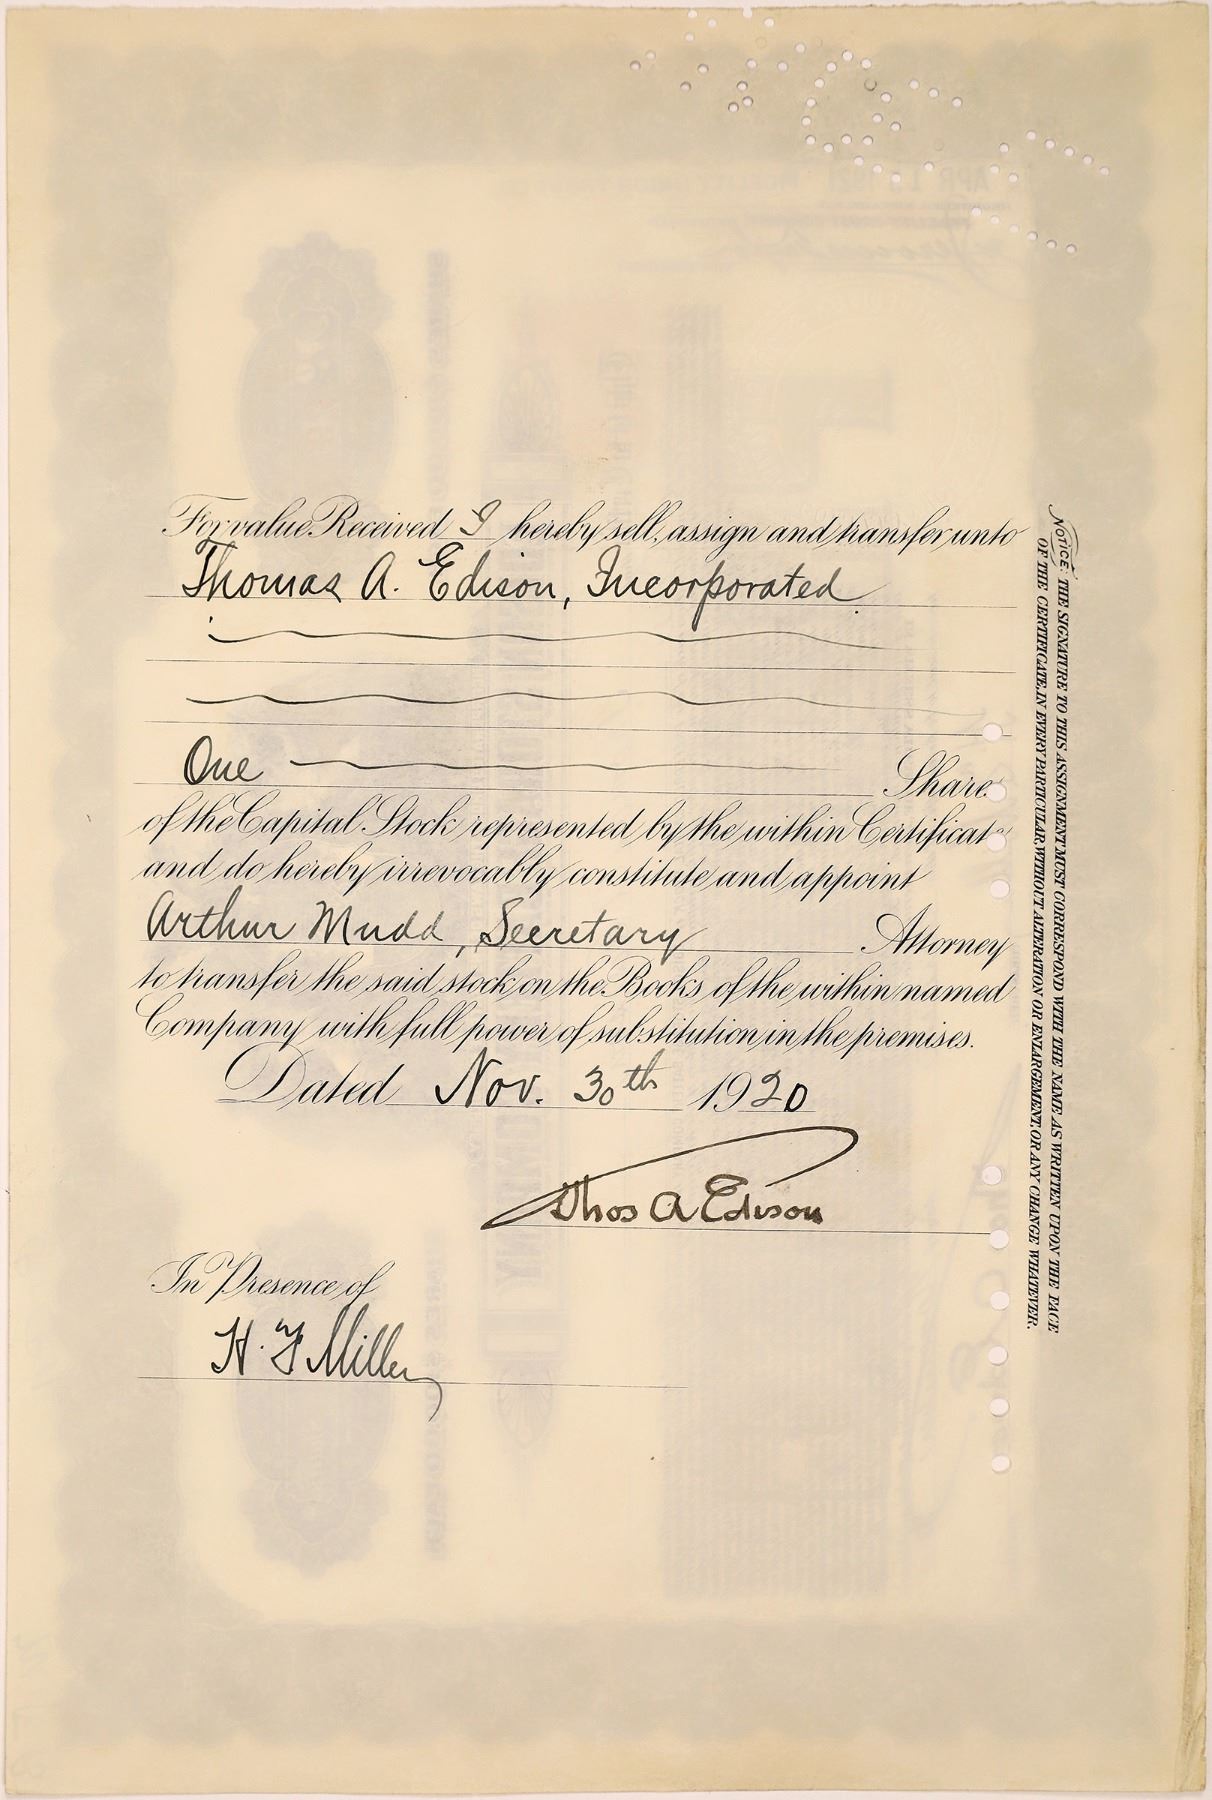 For value Received I hereby sell, assign and transfer unto
Thomas A. Edison, Incorporated
One Share
of the Capital Stock represented by the within Certificate
and do hereby irrevocably constitute and appoint
Arthur Mudd, Secretary Attorney
to transfer the said stock on the Books of the within named
Company with full power of substitution in the premises.
Dated Nov. 30th 1920
Thos A Edison
In Presence of
H. F Miller
NOTICE, THE SIGNATURE TO THIS ASSIGNMENT MUST CORRESPOND WITH THE NAME AS WRITTEN UPON THE FACE
OF THE CERTIFICATE, IN EVERY PARTICULAR, WITHOUT ALTERATION OR ENLARGEMENT, OR ANY CHANGE WHATEVER.